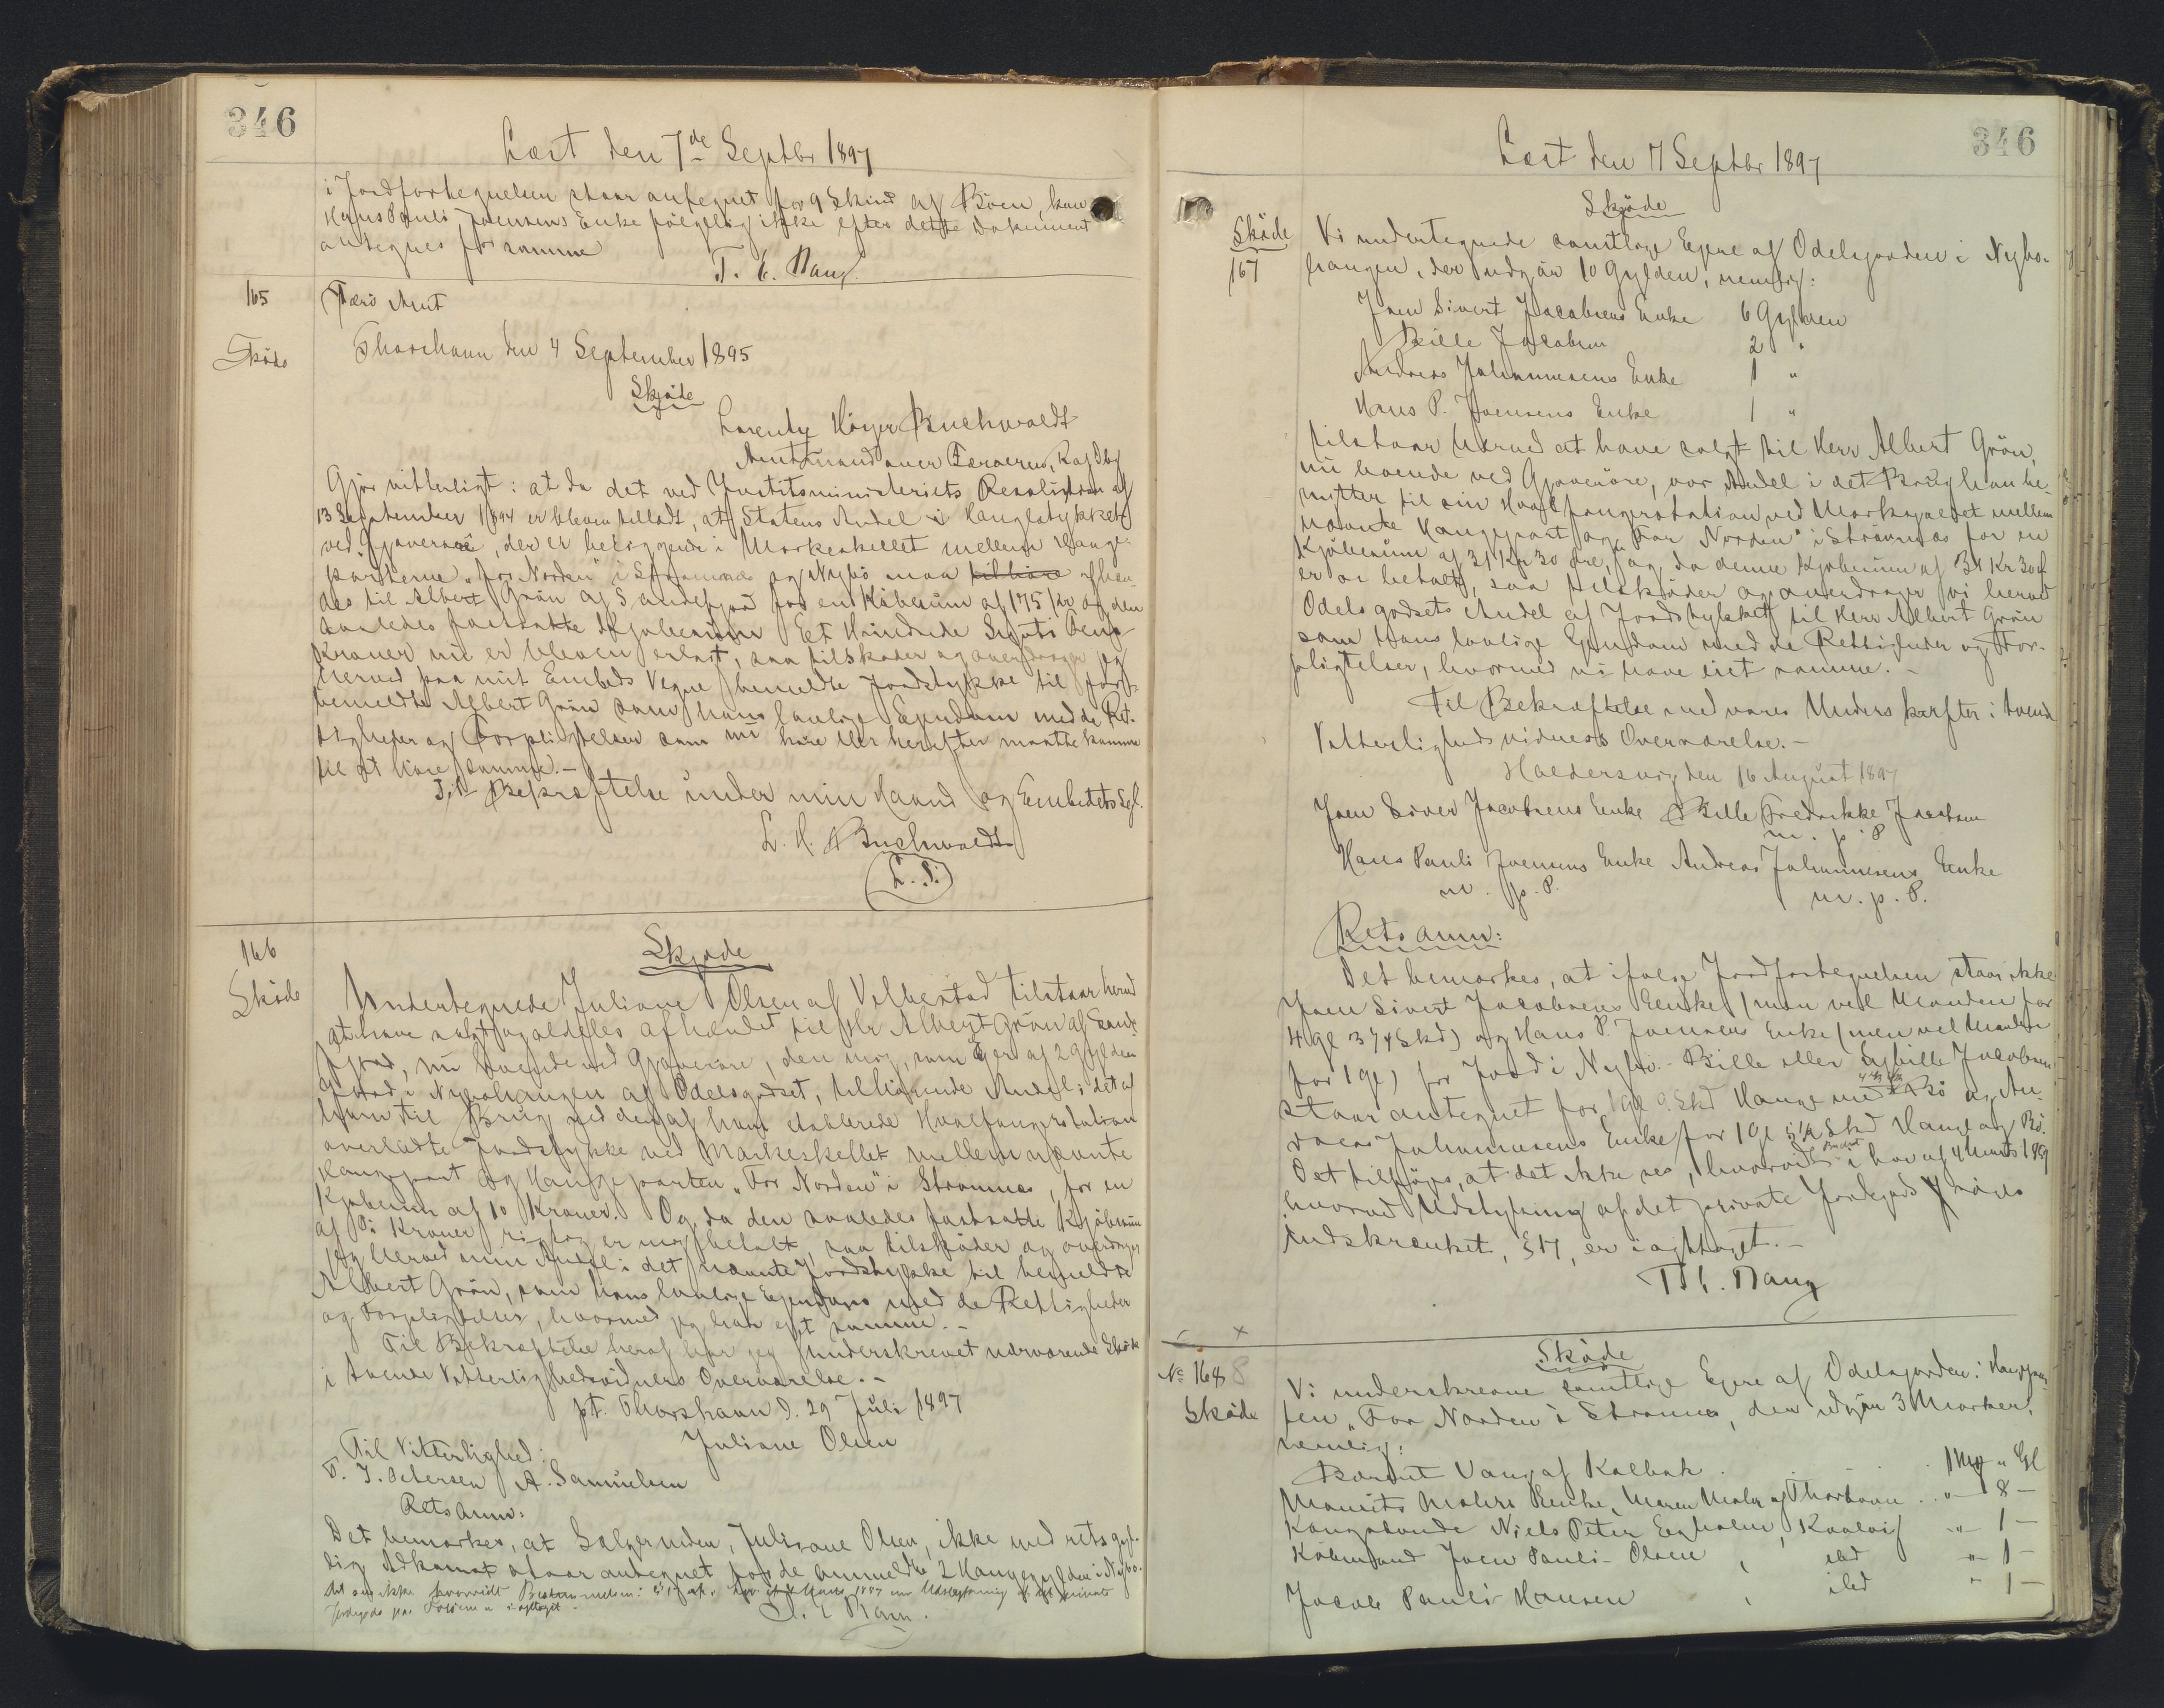 346
Læst den 7de Septbr 1897
i Jordfortegnelsen staar antegnet for 9 Skind af Böen, kan
Hans Pauli Joensens Enke fölgelig ikke efter dette Dokument
antegnes for samme
165
Færö Amt
Sköde
Thorshavn den 4 September 1895
Skjöde
Lorentz Höyer Buchwaldt
Amtmand over Færöerne, R af Dbg
Gjör vitterligt: at da det ved Justitsministeriets Resolution af
13 September 1894 er bleven tilladt, at Statens Andel i Haugstykket
ved Gjaveraá, der er beliggende i Markeskellet mellem Hauge-
parterne "for Norden" i Strömnæs og Nybö maa tilhöre afhæn-
des til Albert Grön af Sandefjord for en Köbesum af 175 Kr og den
saaledes fastsatte Kjöbesum Eet Hundrede Syvti Fem
Kroner nu er bleven erlagt, saa tilsköder og overdrager jeg
herved paa mit Embeds Vegne bemeldte Jordstykke til for-
bemeldte Albert Grön som hans lovlige Ejendom med de Ret-
tigheder og Forpligtelser som nu höre eller herefter maatte komme
til at höre samme.-
Til Bekræftelse under min Haand og Embedets Segl.
L. H. Buchwaldt
L. S.
166
Sköde
Skjöde
Undertegnede Juliane Olsen af Velbestad tilstaar herved
at have solgt og aldeles afhændet til Hr Albert Grön af Sande-
fjord, nu boende ved Gjaveröre, den mig, som Ejer af 2 Gylden
Jord i Nybohaugen af Odelsgodset, tilhörende Andel i det af
ham til Brug ved den af ham etablerede Hvalfangerstation
overladte Jordstykke ved Markeskellet mellem nævnte
Haugepart og Haugeparten "For Norden" i Strömnæs, for en
Kjöbesum af 10 Kroner. Og da den saaledes fastsatte Kjöbesum
af Ti Kroner rigtig er mig betalt, saa tilsköder og overdrager
jeg herved min Andel i det nævnte Jordstykke til bemeldte
Albert Grön, som hans lovlige Ejendom med de Rettigheder
og Forpligtelser, hvormed jeg har ejet samme.-
Til Bekræftelse heraf har jeg underskrevet nærværende Sköde
i tvende Vitterlighedsvidners Overværelse.-
pt. Thorshavn d. 29 Juli 1897
Juliane Olsen
Til Vitterlighed:
P. J. Petersen A. Samuelsen
Rets Anm:
Det bemærkes, at Sælgerinden, Juliane Olsen, ikke med rets gyl-
dig Adkomst staar antegnet for de anmeldte 2 Haugegylden i Nybo.
Det sees ikke hvorvidt Bestemmelsen i § 17 af Lov af 4 Marts 1857 om Udstykning af det private
Jordegods paa Færöerne er iagttaget.
346
Læst den 7 Septbr 1897
Skjöde
Sköde
167
Vi undertegnede samtlige Ejere af Odelsjorden i Nybo-
haugen, der udgör 10 Gylden, nemlig:
Joen Sivert Jacobsens Enke 6 Gylden
Bille Jacobsen 2 "
Andreas Johannesens Enke 1 "
Hans P. Joensens Enke 1 "
tilstaar herved at have solgt til Herr Albert Grön,
nu boende ved Gjaveröre, vor Andel i det Brug han be-
nytter til sin Hvalfangerstation ved Markeskellet mellem
nævnte Haugepart og "For Norden" i Strömnæs for en
Kjöbesum af 31 Kr 30 Öre, og da denne Kjöbesum af 31 Kr 30 Ö
er os betalt, saa tilsköder og overdrager vi herved
Odelsgodsets Andel af Jordstykket til Herr Albert Grön
som hans lovlige Ejendom med de Rettigheder og For-
pligtelser, hvormed vi have eiet samme.-
Til Bekræftelse med vores Underskrifter i tvende
Vitterlighedsvidners Overværelse.-
Haldersvig den 16 August 1897
Joen Siver Jacobsens Enke Bille Fredrikke Jacobsen
m. p. P.
Hans Pauli Joensens Enke Andreas Johannesens Enke
m. p. P. m. p. P.
Rets Anm:
Det bemærkes, at ifölge Jordfortegnelsen staar ikke
Joen Sivert Jacobsens Enke (men vel Manden for
4 Gl 3 3/4 Skd) og Hans P. Joensens Enke (men vel Manden
for 1 Gl) for Jord i Nybo.- Bille eller Sybille Jacobsen
staar antegnet for 1 Gl 9 Skd Hauge med Bö og An-
dreas Johannesens Enke for 1 Gl Skd Hauge og Bö.
Det tilföjes, at det ikke sees, hvorvidt Budet i Lov af 4 Marts 1857
hvorved Udstykning af det private Jordegods nöjes
indskrænket, § 17, er iagttaget.-
№ 168 8
Sköde
Sköde
Vi underskrevne samtlige Ejere af Odelsjorden i Haugepar-
ten "For Norden" i Strömnæs, der udgör 3 Marker,
nemlig:
Vang af Kalbak . . . 1 Mg " Gl
Maurits Mohrs Enke, Maren Mohr af Thorshavn . . " 8 –
Kongsbonde Niels Peter Egholm, Kvalvig " 1 –
Köbmand Joen Pauli Olsen, ibd " 1 –
Jacob Pauli Hansen, ibd " 1 –